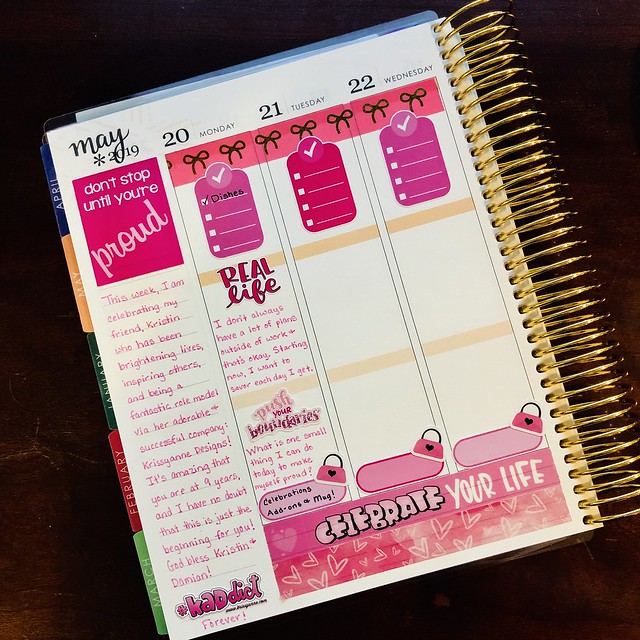 may
*2019
20 MONDAY
21 TUESDAY
22 WEDNESDAY
APRIL
MAY
JANUARY
FEBRUARY
MARCH
don't stop
until you're
proud
This week, I am
celebrating my
friend, Kristin
who has been
brightening lives,
inspiring others,
and being a
fantastic role model
via her adorable &
successful company:
Krissyanne Designs!
It's amazing that
you are at 9 years,
and I have no doubt
that this is just the
beginning for you!
God bless Kristin &
Damian!
#kaddict
Forever!
Dishes
REAL
life
I don't always
have a lot of plans
outside of work &
that's okay. Starting
now, I want to
savor each day I get.
push
YOUR
boundaries
What is one small
thing I can do
today to make
myself proud?
Celebrations
Add-ons & Mug!
CELEBRATE YOUR LIFE